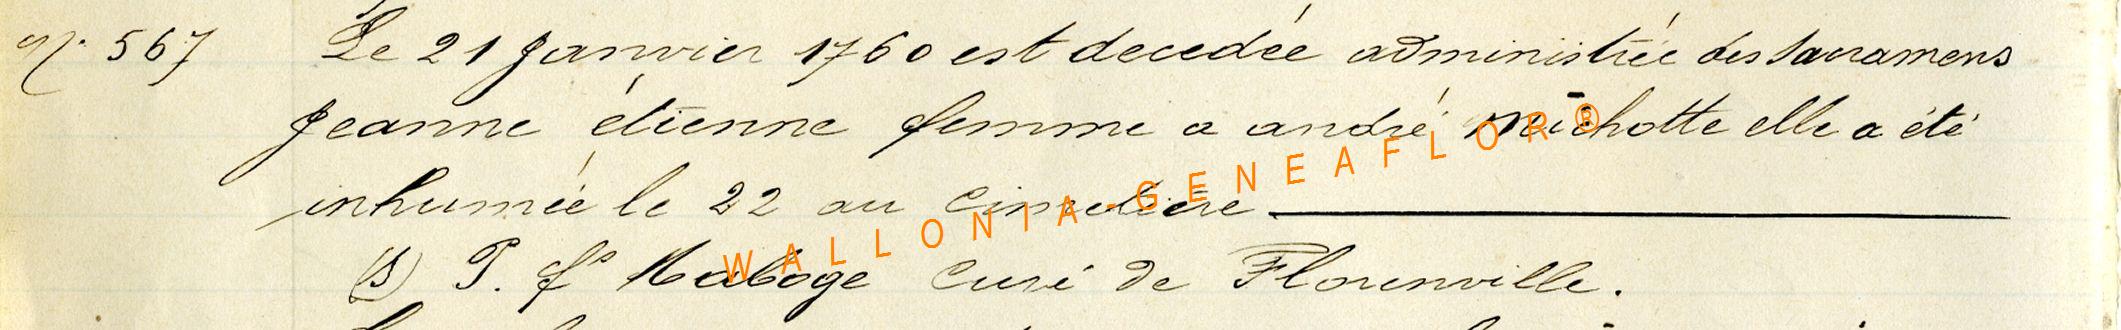 n° 567 Le 21 Janvier 1760 est decedée administrée des Sacramens
Jeanne étienne femme a andré michotte elle a été
inhumée le 22 au Cimetière.
(s) P. fs Maboge Curé de Florenville.
WALLONIA-GENEAFLOR®